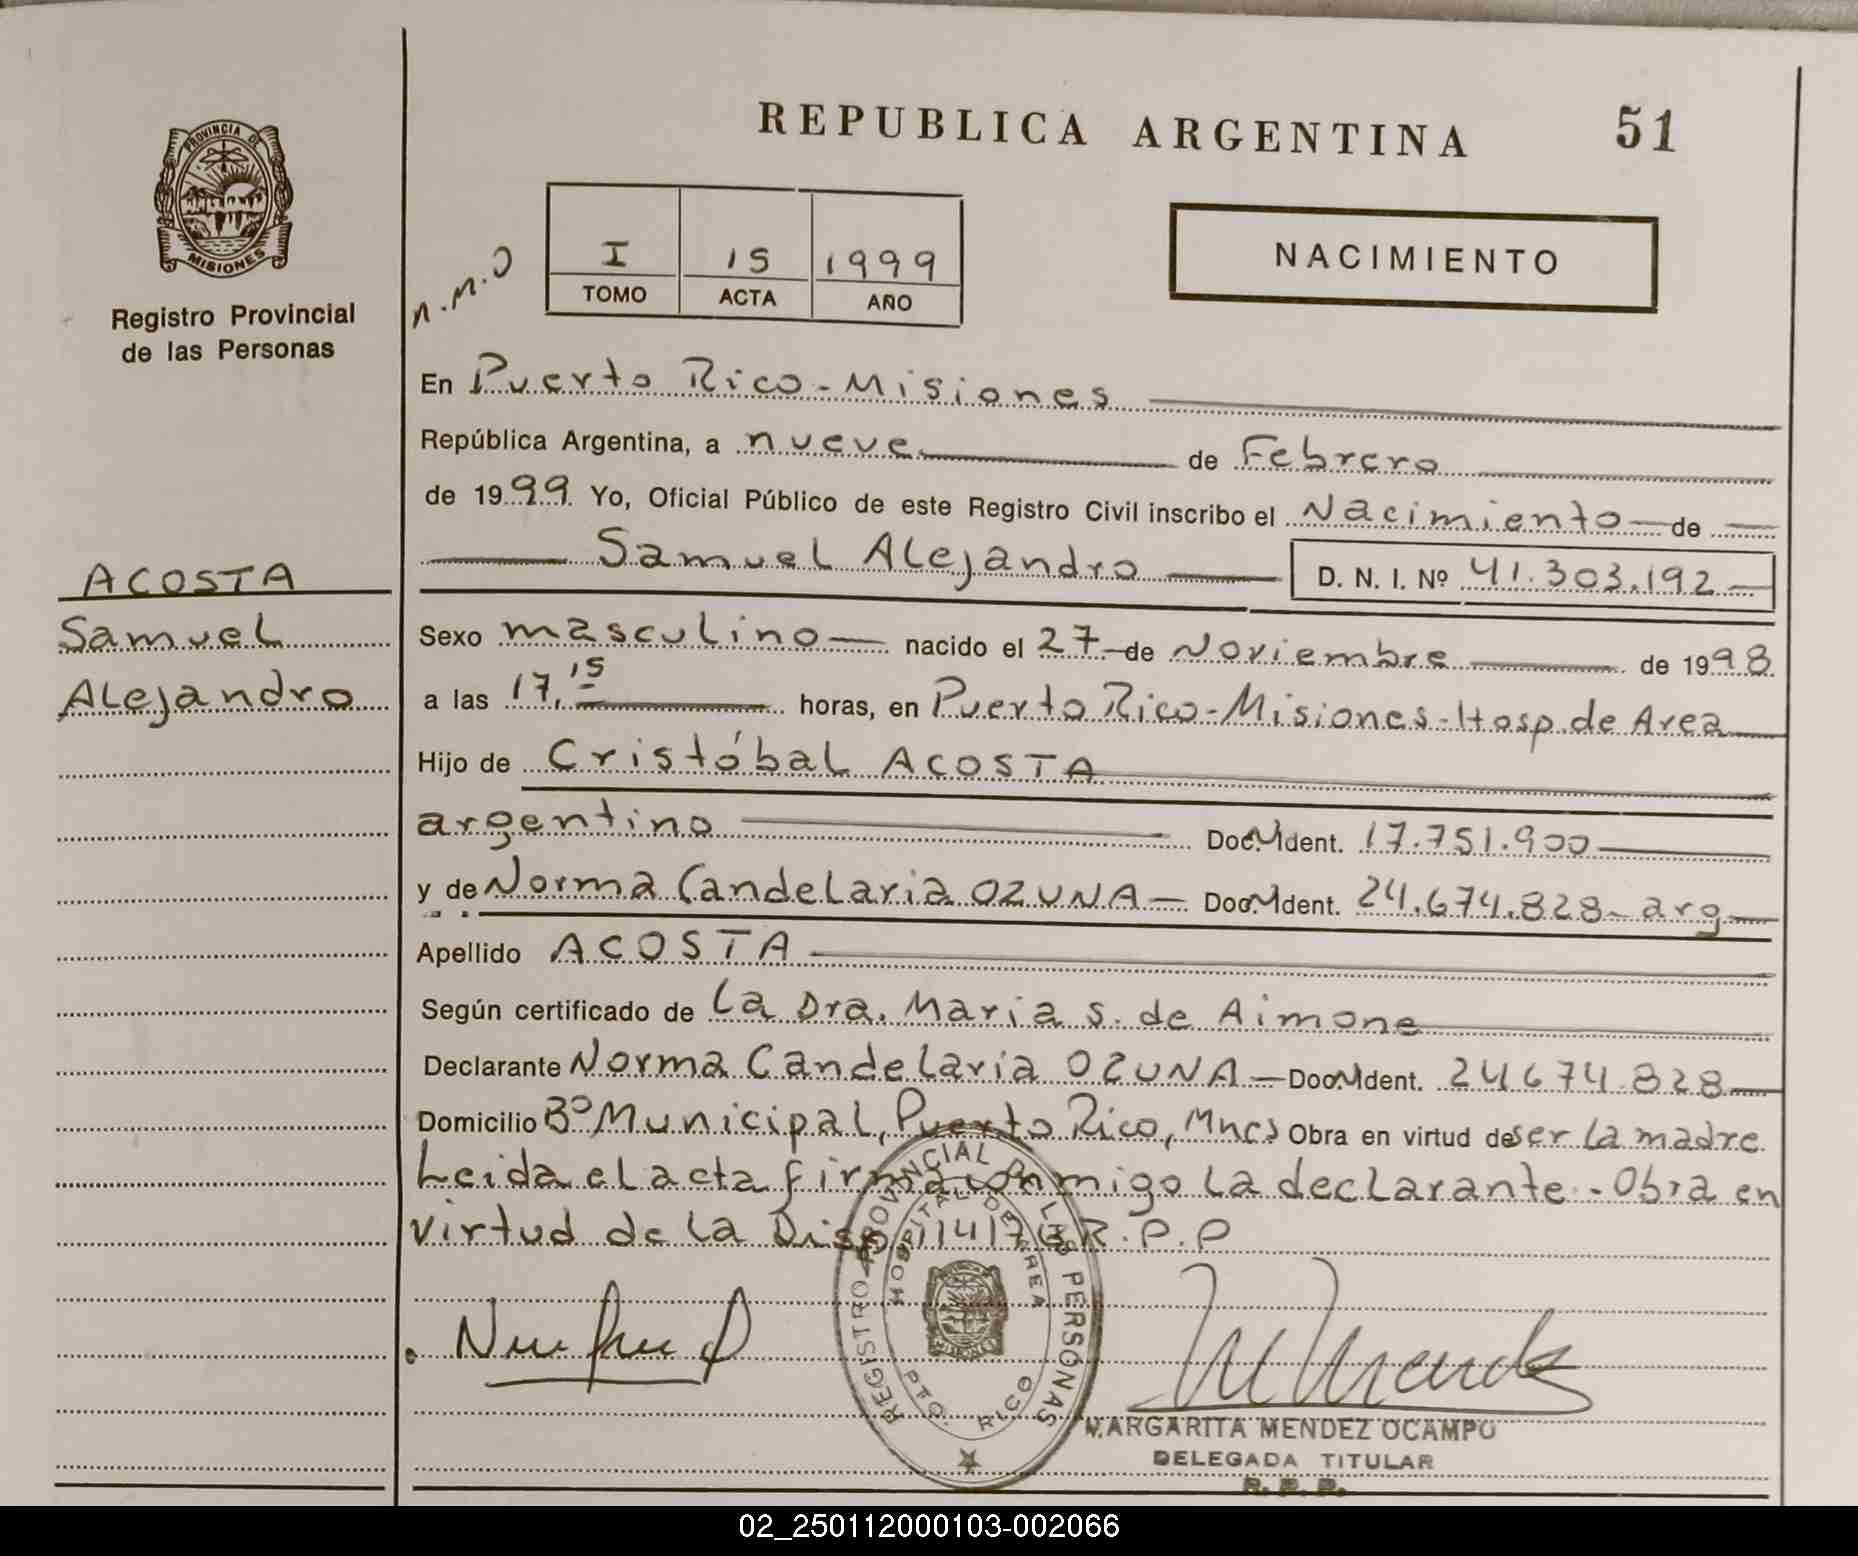 REPUBLICA ARGENTINA 51
PROVINCIA DE
MISIONES
Registro Provincial
de las Personas
n.m.o
I 15 1999
TOMO ACTA AÑO
NACIMIENTO
En Puerto Rico - Misiones
República Argentina, a nueve de Febrero
de 1999 Yo, Oficial Público de este Registro Civil inscribo el Nacimiento de
Samuel Alejandro D. N. I. Nº 41.303.192
ACOSTA
Samuel
Alejandro
Sexo masculino nacido el 27 de Noviembre de 1998
a las 17,15 horas, en Puerto Rico-Misiones-Hosp.de Area
Hijo de Cristóbal ACOSTA
argentino Doc. Ident. 17.751.900
y de Norma Candelaria OZUNA Doc. Ident. 24.674.828 - arg
Apellido ACOSTA
Según certificado de la Dra. Maria S. de Aimone
Declarante Norma Candelaria OZUNA Doc. Ident. 24674.828
Domicilio Bº Municipal, Puerto Rico, Mnes Obra en virtud de ser la madre
Leida el acta firma conmigo la declarante - Obra en
virtud de la Disp 114176 R.P.P
REGISTRO PROVINCIAL DE LAS PERSONAS
HOSPITAL DE AREA
PTO. RICO
MARGARITA MENDEZ OCAMPO
DELEGADA TITULAR
R. P. P.
02_250112000103-002066